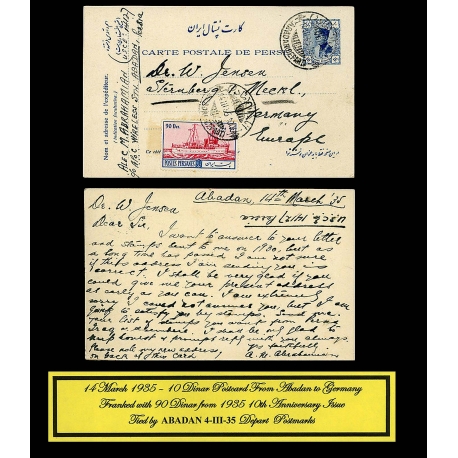 کارت پستال ایران
CARTE POSTALE DE PERSE
Nom et adresse de l'expéditeur.
Alec M. Abrahamian
c/o AIOC Wireless Stn. Abadan,
Dr. W. Jensen
Sternberg i. Meckl.
Germany
Europe
90 Drs
POSTES PERSANES
Abadan, 14th March '35
Dr. W. Jensen
Dear Sir,
I want to answer to your letter
and stamps sent to me on 1930, but as
a long time has passed I am not sure
if this address I am sending you is
correct. I shall be very glad if you
could give me your present address
as early as you can. I am extremely
sorry I could not answer you, but I am
to satisfy you by stamps. Send me
your list of stamps you want from Iran
Iraq or elsewhere. I shall be very glad to
keep honest & prompt reply with you always.
Please note my new address,
on back of this Card
Yours faithfully,
A. M. Abrahamian
14 March 1935 - 10 Dinar Postcard From Abadan to Germany
Franked with 90 Dinar from 1935 10th Anniversary Issue
Tied by ABADAN 4-III-35 Depart Postmarks